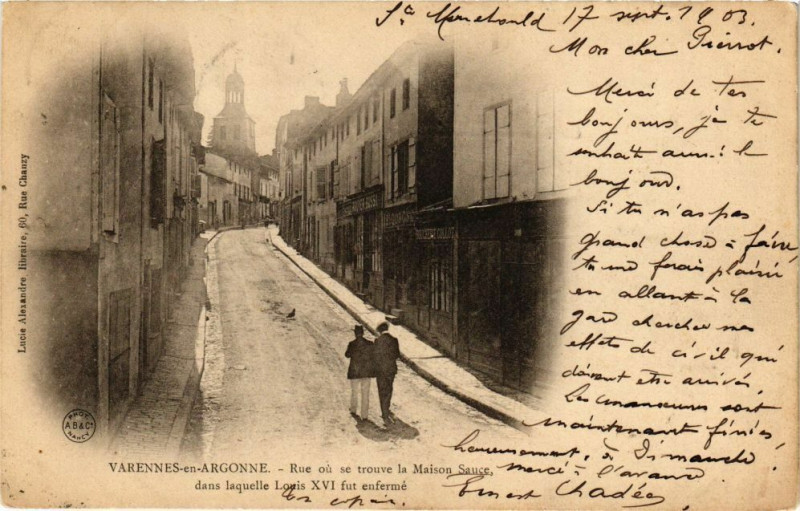 Ste Menehould 17 sept. 1903.
Mon cher Pierrot.
Merci de tes
bonjours, je te
souhait aussi le
bonjour.
Si tu n'as pas
grand chose à faire,
tu me ferais plaisir
en allant à la
gare chercher mes
effets de civil qui
doivent etre arrivés.
Les manoeuvres sont
maintenant finies,
heureusement. à Dimanche.
merci à l'avance.
Ernest Chadée
Lucie Alexandre libraire, 60, Rue Chanzy
PHOT.
A.B.&Cº
NANCY
VARENNES-en-ARGONNE. - Rue où se trouve la Maison Sauce,
dans laquelle Louis XVI fut enfermé